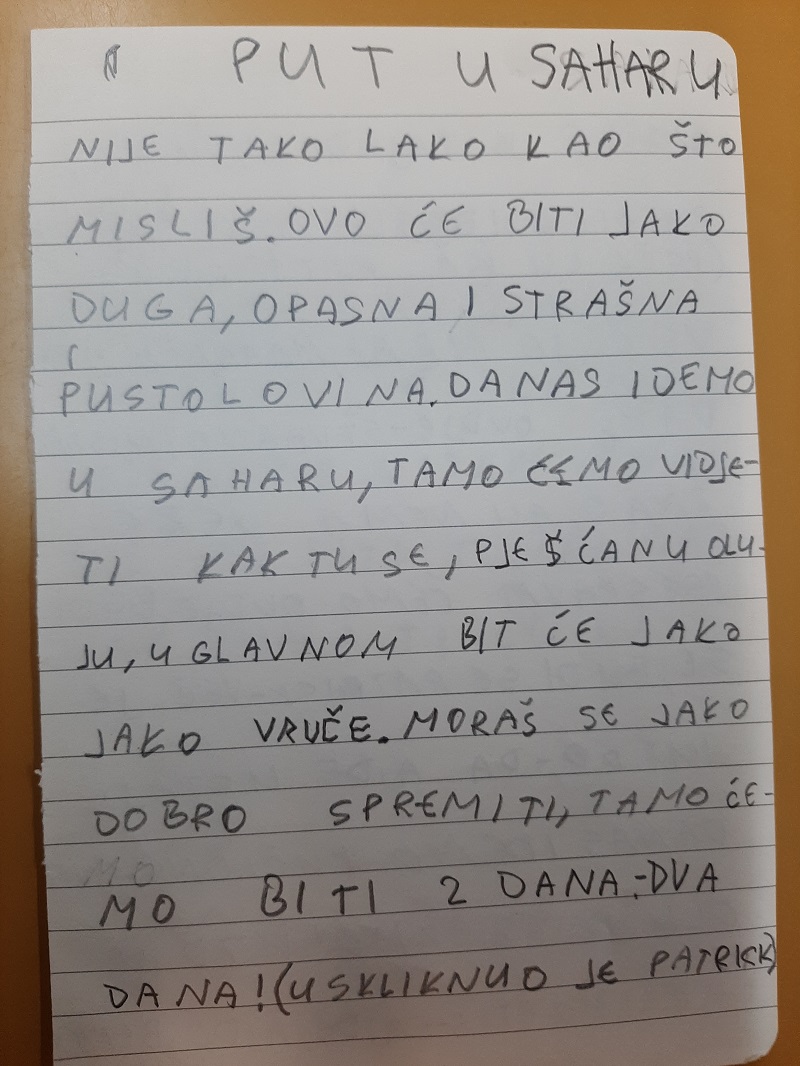 PUT U SAHARU
NIJE TAKO LAKO KAO ŠTO
MISLIŠ. OVO ĆE BITI JAKO
DUGA, OPASNA I STRAŠNA
PUSTOLOVINA. DANAS IDEMO
U SAHARU, TAMO ĆEMO VIDJE-
TI KAKTUSE, PJEŠĆANU OLU-
JU, UGLAVNOM BIT ĆE JAKO
JAKO VRUČE. MORAŠ SE JAKO
DOBRO SPREMITI, TAMO ĆE-
MO BITI 2 DANA.-DVA
DANA! (USKLIKNUO JE PATRICK)